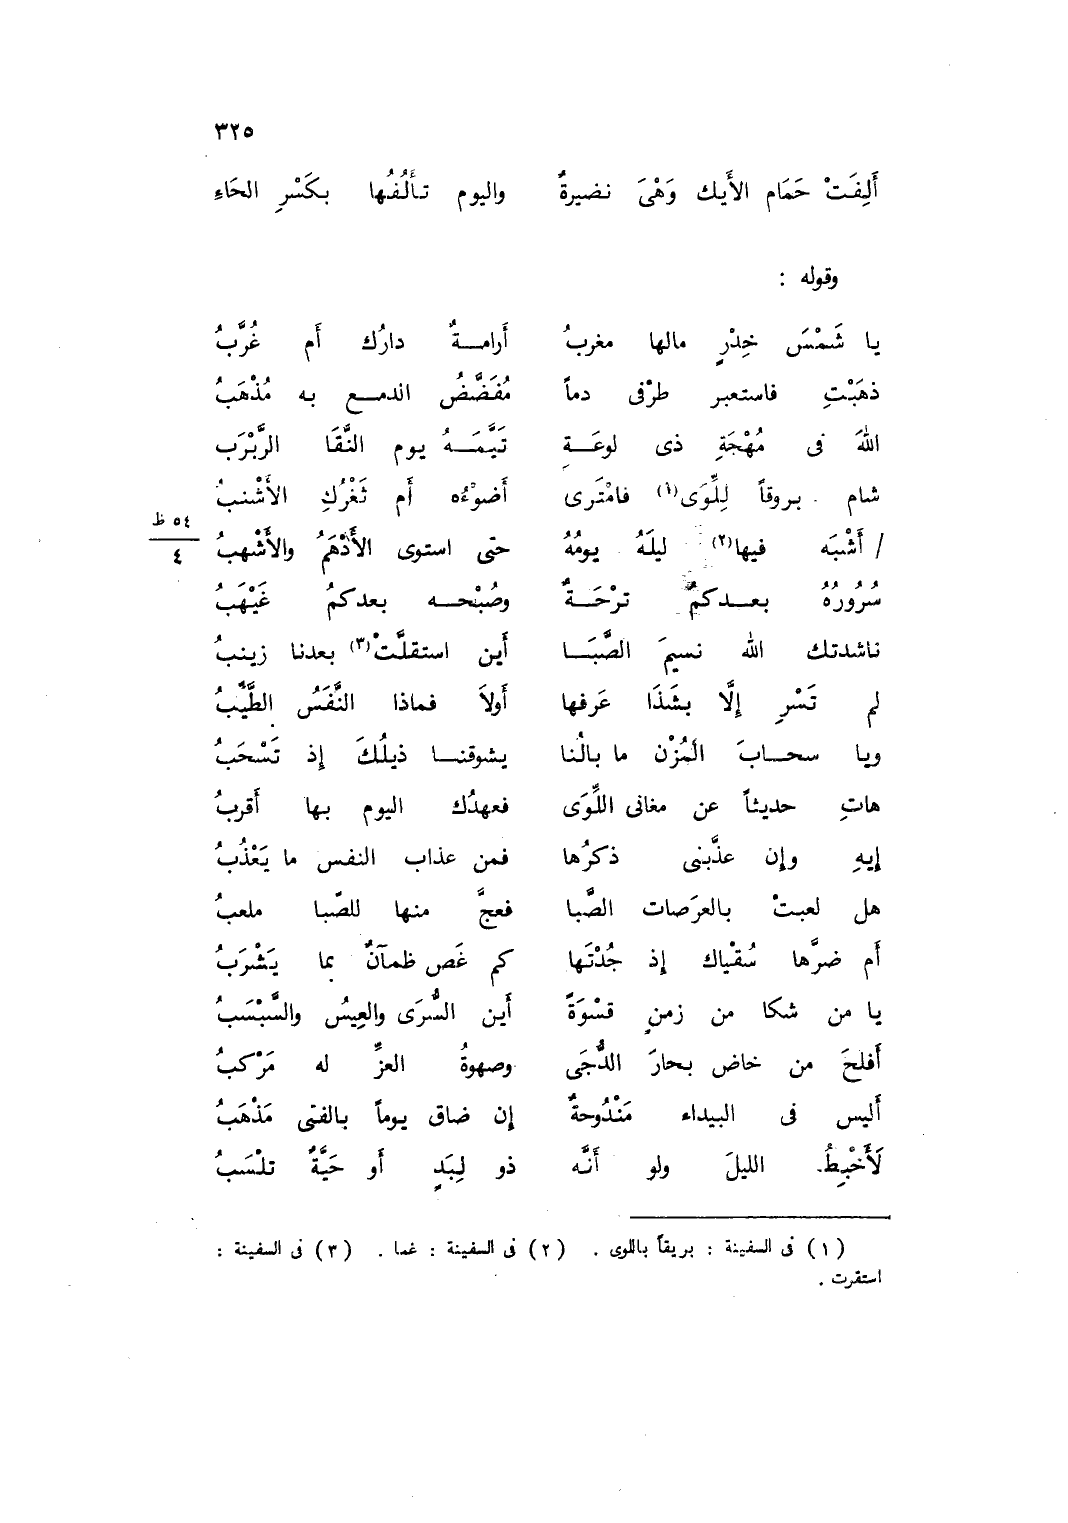 ٣٢٥
أَلِفَتْ حَمَام الأَيك وَهْىَ نضيرةٌ واليوم تأْلُفُها بكَسْرِ الحَاءِ
وقوله :
يا شَمْسَ خِدْرٍ مالها مغربُ أَرامـــةٌ دارُك أَم غُرَّبُ
ذهَبْتِ فاستعبر طرْفى دماً مُفَضَّضُ الدمــع به مُذْهَبُ
اللهَ فى مُهْجَةِ ذى لوعَــةٍ تَيَّمَــهُ يوم النَّقَا الرَّبْرَب
شام بروقاً لِلِّوَى(١) فامْتَرى أَضوْءُه أَم ثَغْرُكِ الأَشْنبُ
/ أَشْبَه فيها(٢) ليلَهُ يومُهُ حتى استوى الأَدْهَمُ والأَشْهبُ
٥٤ ظ
٤
سُرُورُهُ بعــدكمُ ترْحَــةٌ وصُبْحــه بعدكمُ غَيْهَبُ
ناشدتك الله نسيمَ الصَّبَــا أَين استقلَّتْ(٣) بعدنا زينبُ
لم تَسْرِ إِلَّا بشَذَا عَرفها أَولاَ فماذا النَّفَسُ الطَّيِّبُ
ويا سحــابَ المُزْن ما بالُنا يشوقنــا ذيلُكَ إِذ تَسْحَبُ
هاتِ حديثاً عن مغانى اللِّوَى فعهدُك اليوم بها أَقربُ
إِيهِ وإِن عذَّبنى ذكرُها فمن عذاب النفس ما يَعْذُبُ
هل لعبتْ بالعرَصات الصَّبا فعجَّ منها للصِّبا ملعبُ
أَم ضرَّها سُقْياك إِذ جُدْتَها كم غَص ظمآنٌ بما يَشْرَبُ
يا من شكا من زمنٍ قسْوَةً أَين السُّرَى والعِيسُ والسَّبْسَبُ
أَفلحَ من خاض بحارَ الدُّجَى وصهوةُ العزِّ له مَرْكبُ
أَليس فى البيداء مَنْدُوحةٌ إِن ضاق يوماً بالفتى مَذْهَبُ
لَأَخْبِطُ الليلَ ولو أَنَّه ذو لِبَدٍ أَو حَيَّةٌ تلْسَبُ
(١) فى السفينة : بريقاً باللوى . (٢) فى السفينة : غما . (٣) فى السفينة :
استقرت .